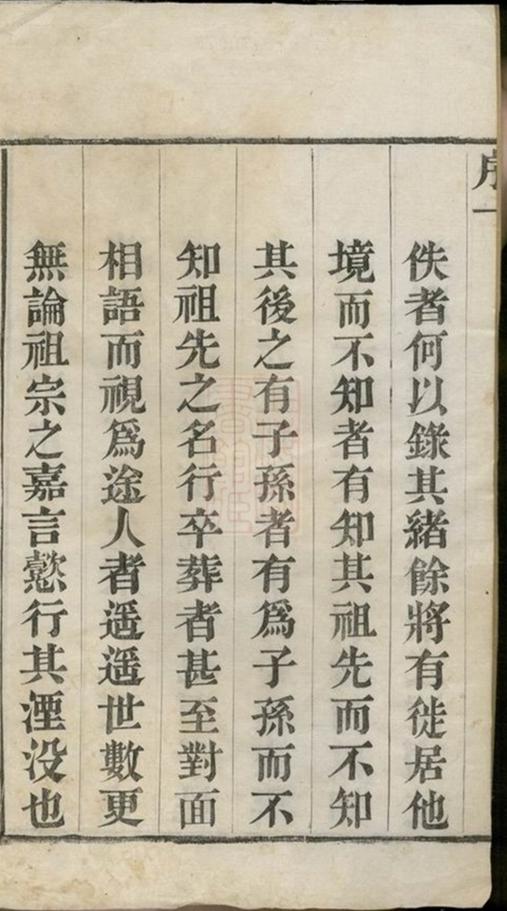 序一
佚者何以錄其緒餘將有徙居他
境而不知者有知其祖先而不知
其後之有子孫者有爲子孫而不
知祖先之名行卒葬者甚至對面
相語而視爲途人者遥遥世數更
無論祖宗之嘉言懿行其湮没也